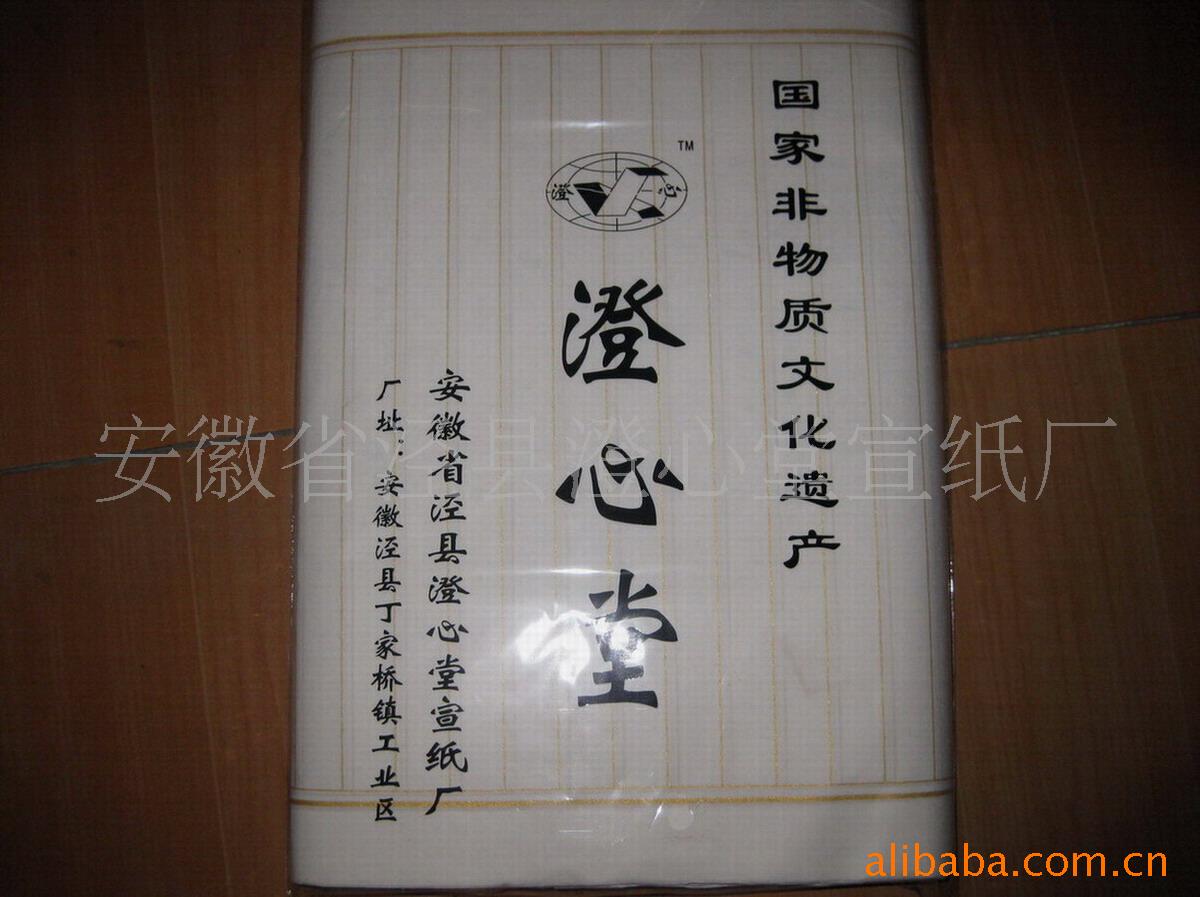 国家非物质文化遗产
TM
澄心
澄心堂
安徽省泾县澄心堂宣纸厂
厂址：安徽泾县丁家桥镇工业区
安徽省泾县澄心堂宣纸厂
alibaba.com.cn